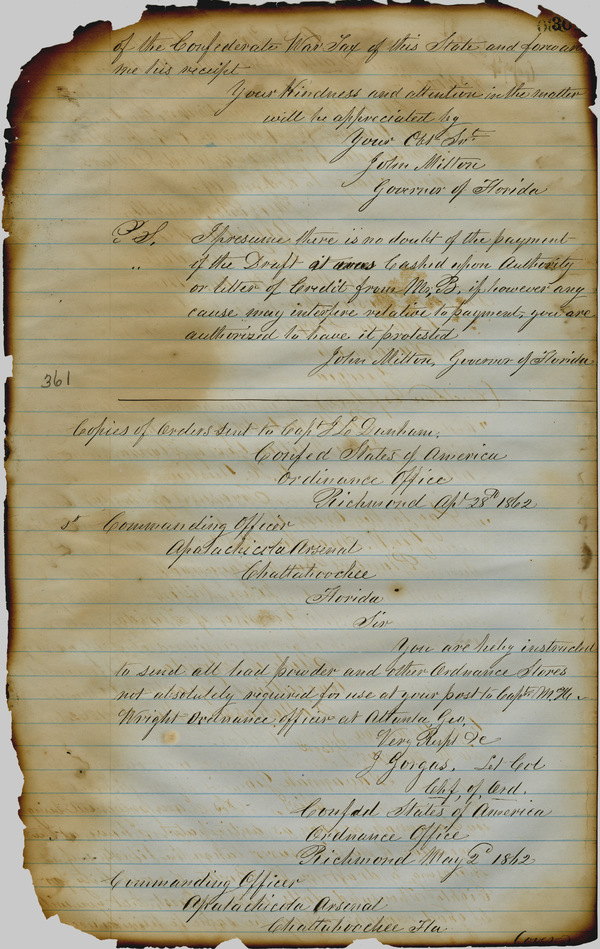 of the Confederate War Tax of this State and forward
me his receipt
Your Kindness and attention in the matter
will be appreciated by
Your Obt Svt
John Milton
Governor of Florida
P.S. I presume there is no doubt of the payment
" of the Draft it was Cashed upon Authority
or letter of Credit from Mr. B. if however any
cause may interfere relative to payment, you are
authorized to have it protested
John Milton, Governor of Florida
361
Copies of Orders sent to Capt J L Dunham.
Confed States of America
Ordinance Office
Richmond Apl 28th 1862
Commanding Officer
Apalachicola Arsenal
Chattahoochee
Florida
Sir
You are heby instructed
to send all lead powder and other Ordnance Stores
not absolutely required for use at your post to Capt. M. H.
Wright Ordnance officer at Atlanta, Geo,
Very Respt &c
J Gorgas. Lt Col
Chf, of, Ord.
Confed States of America
Ordnance Office
Richmond May 2d 1862
Commanding Officer
Apalachicola Arsenal
Chattahoochee Fla